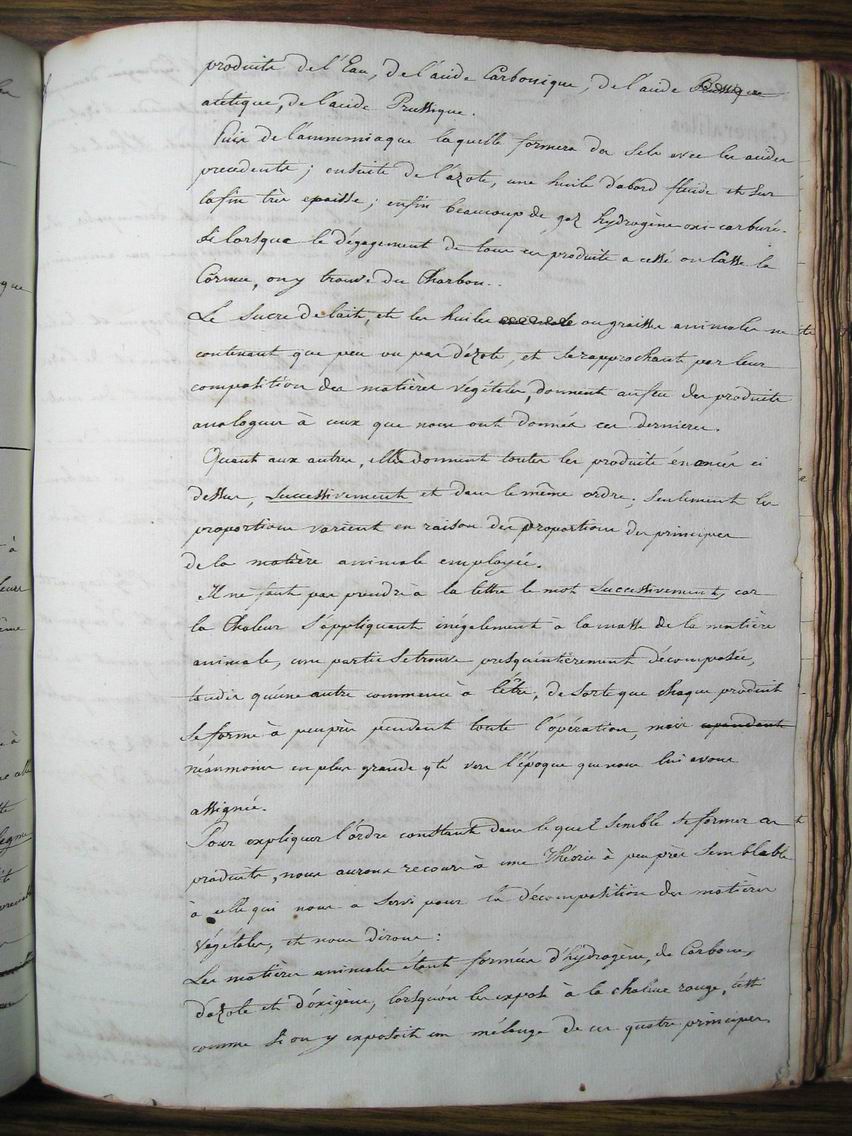 produits de l'Eau, de l'acide Carbonique, de l'acide Prussique
acétique, de l'acide Prussique.
Puis de l'ammoniaque laquelle formera des sels avec les acides
precedents; ensuite de l'azote, une huile d'abord fluide et sur
la fin très epaisse; enfin beaucoup de gaz hydrogène-oxi-carburé.
Si lorsque le dégagement de tous ces produits a cessé on casse la
Cornue, on y trouve du Charbon..
Le Sucre de lait, et les huiles animale ou graisses animales ne
contenant que peu ou pas d'azote, et se rapprochant par leur
composition des matières végétales, donnent au feu des produits
analogues à ceux que nous ont donnés ces dernieres.
Quant aux autres, elles donnent toutes les produits énoncés ci
dessus, successivement et dans le même ordre; seulement les
proportions varient en raison des proportions des principes
de la matière animale employée.
Il ne faut pas prendre à la lettre le mot successivement, car
la Chaleur s'appliquant inégalement à la masse de la matière
animale, une partie se trouve presqu'entièrement décomposée,
tandis qu'une autre commence à l'être, de sorte que chaque produit
se forme à peu près pendant toute l'opération, mais cependant
néanmoins en plus grande q.té vers l'époque que nous lui avons
assignée.
Pour expliquer l'ordre constant dans lequel semble se former ces
produits, nous aurons recours à une théorie à peu près semblable
à celle qui nous a servi pour la décomposition des matières
végétales, et nous dirons:
Les matières animales étant formées d'hydrogène, de Carbone,
d'azote et d'oxigène, lorsqu'on les expose à la chaleur rouge, c'est
comme si on y exposoit un mélange de ces quatre principes